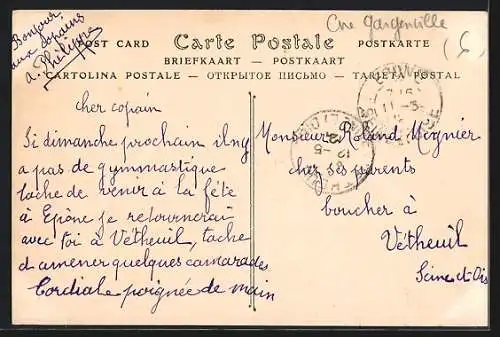 Bonjour
aux copains
a. Philippe
Cne Gargenville
POST CARD Carte Postale POSTKARTE
BRIEFKAART — POSTKAART
CARTOLINA POSTALE — ОТКРЫТОЕ ПИСЬМО — TARJETA POSTAL
cher copain
Si dimanche prochain il ny
a pas de gymnastique
tache de venir à la fête
à Epône je retournerai
avec toi à Vétheuil, tache
d amener quelques camarades
Cordiale poignée de main
Monsieur Roland Mignier
chez ses parents
boucher à
Vétheuil
Seine et Ois